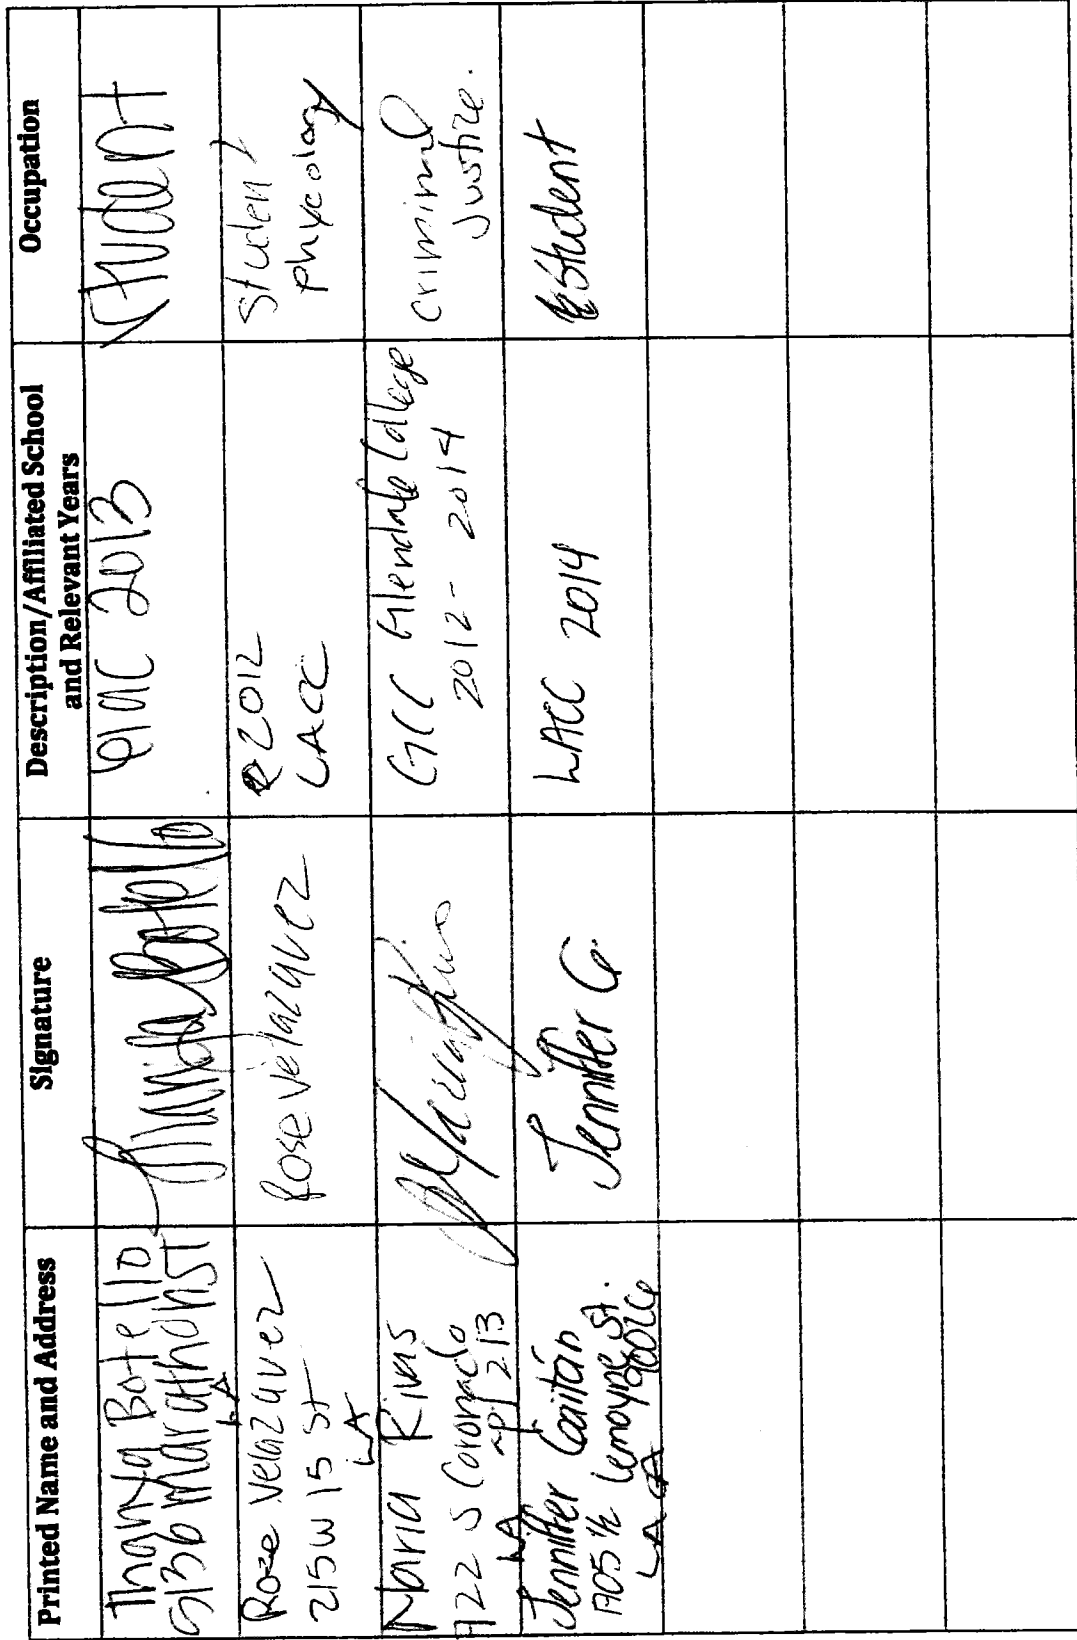 Printed Name and Address
Signature
Description/Affiliated School
and Relevant Years
Occupation
Thanya Botello
5136 Marathon ST
LA
Thanya Botello
2013
Student
Rose Velazquez
215 W 15 St
LA
Rose Velazquez
2012
LACC
Student
phycology
Maria Rivas
722 S Coronado
apt 213
LA
GCC Glendale College
2012 - 2014
Criminal
Justice.
Jennifer Gaitán
1705 1/2 Lemoyne St.
LA CA 90026
Jennifer G.
LACC 2014
Student